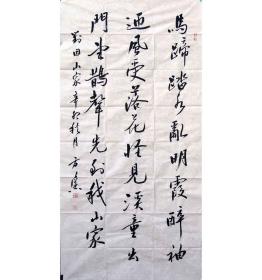 馬蹄踏水亂明霞醉袖
迎風受落花怪見溪童出
門望鵲聲先到我山家
劉因山家辛卯秋月方